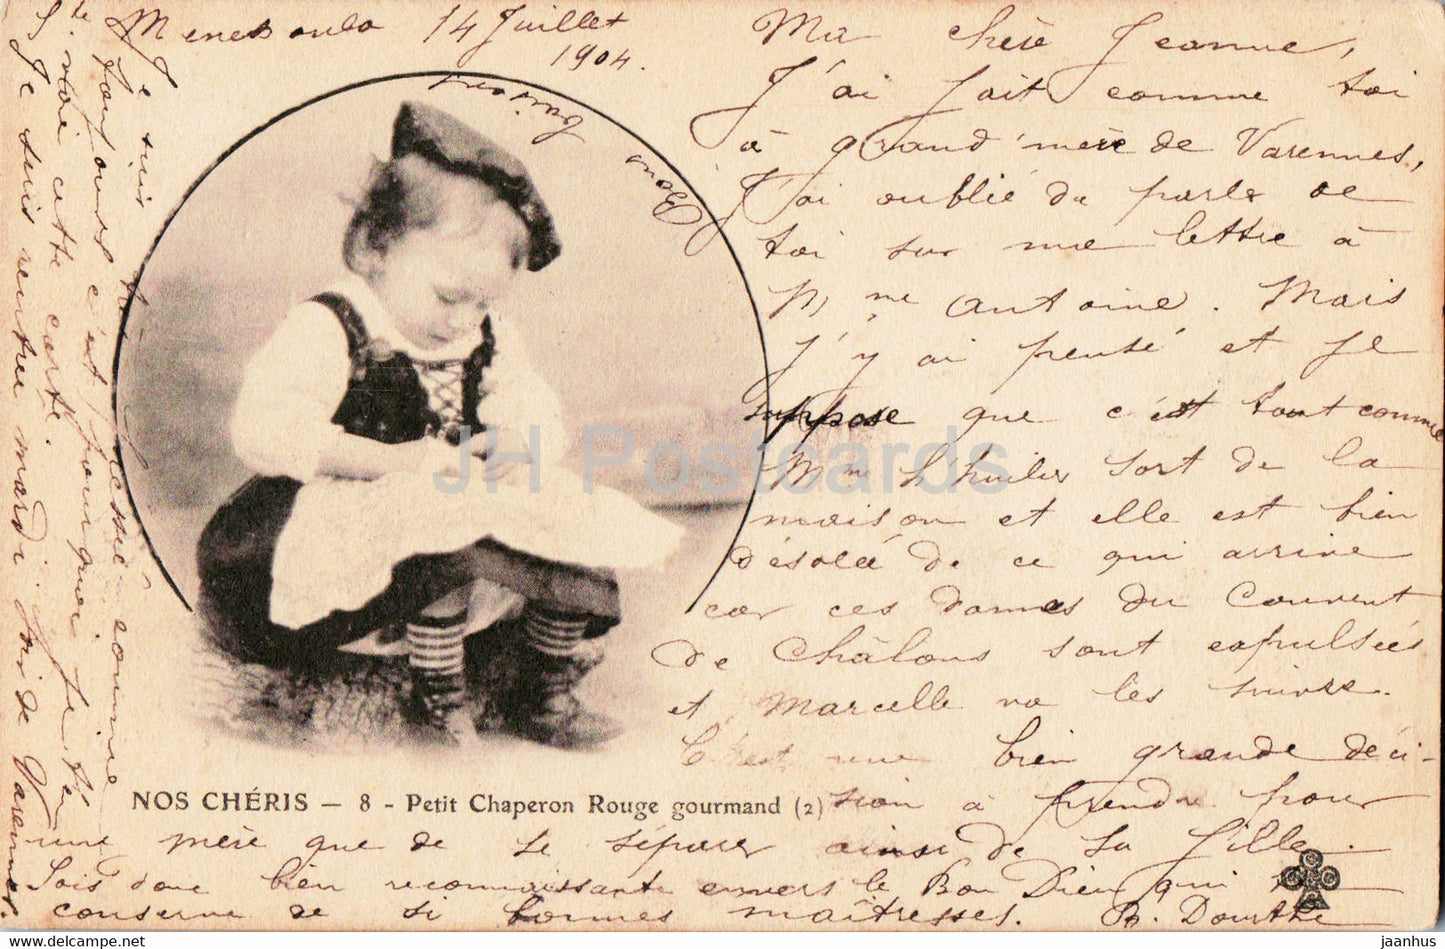 14 Juillet
1904.
Ma chère Jeanne,
J'ai fait comme toi
à grand'mère de Varennes,
J'ai oublié de parler de
toi sur me lettre à
Mme Antoine. Mais
j'y ai pensé et je
suppose que c'est tout comme
Mme L'huilier sort de la
maison et elle est bien
désolée de ce qui arrive
car ces dames du Couvent
de Châlons sont expulsées
et Marcelle va les suivre.
C'est une bien grande déci-
sion à prendre pour
une mère que de se séparer ainsi de sa fille.
Sois donc bien reconnaissante envers le Bon Dieu qui te
conserve de si bonnes maîtresses. B. Dourthe
Bon
Je suis
comme
toujours c'est pourquoi je
voie cette carte.
Je suis rentrée mardi soir de Varennes.
NOS CHÉRIS — 8 - Petit Chaperon Rouge gourmand (2)
JH Postcards
jaanhus @ delcampe.net